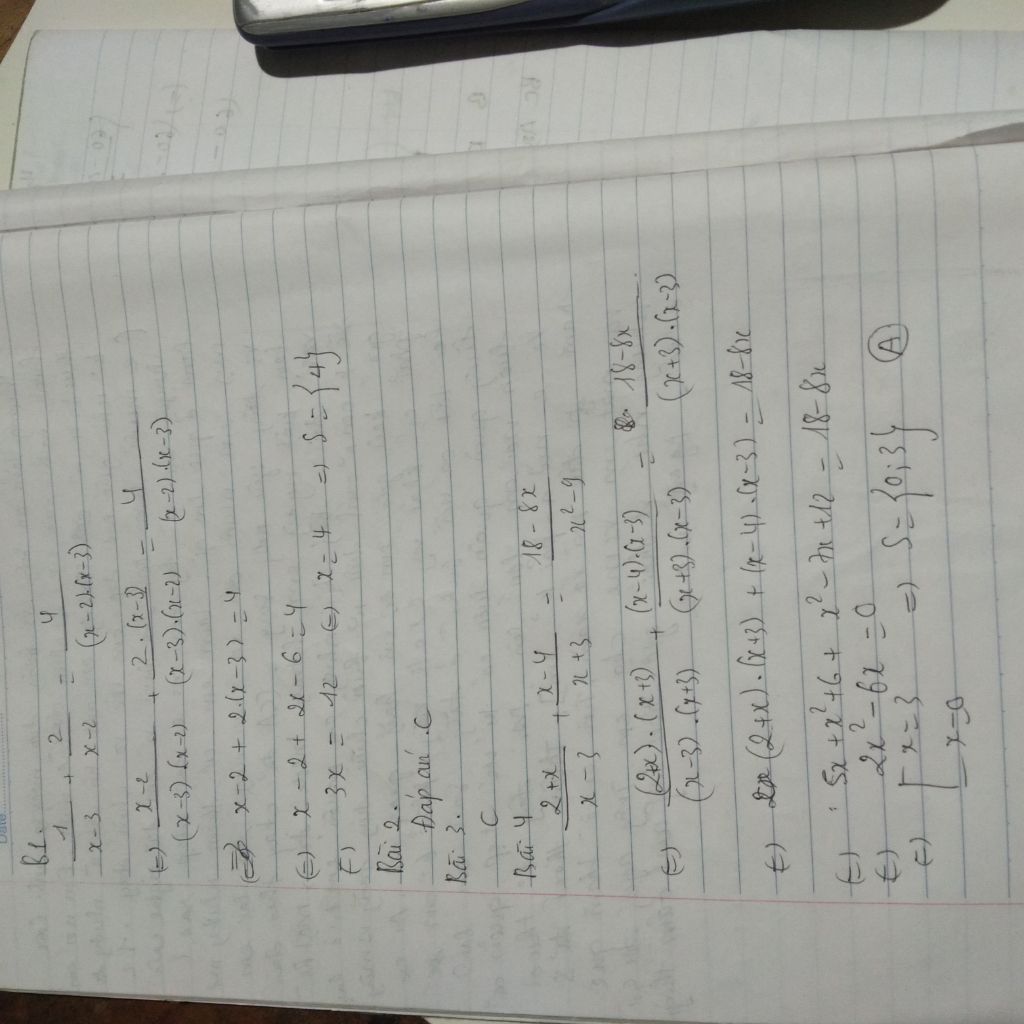 Date:
B1.
1/(x-3) + 2/(x-2) = 4/((x-2).(x-3))
(=) (x-2)/((x-3).(x-2)) + (2.(x-3))/((x-3).(x-2)) = 4/((x-2).(x-3))
(=) x-2 + 2.(x-3) = 4
(=) x-2 + 2x-6 = 4
(=) 3x = 12 (=) x = 4 => S = {4}
Bài 2.
Đáp án C
Bài 3.
C
Bài 4
(2+x)/(x-3) + (x-4)/(x+3) = (18-8x)/(x²-9)
(=) ((2+x).(x+3))/((x-3).(x+3)) + ((x-4).(x-3))/((x+3).(x-3)) = (18-8x)/((x+3).(x-3))
(=) (2+x).(x+3) + (x-4).(x-3) = 18-8x
(=) 5x + x² + 6 + x² - 7x + 12 = 18-8x
(=) 2x² - 6x = 0
(=) [ x = 3 => S = {0;3} A
x = 0